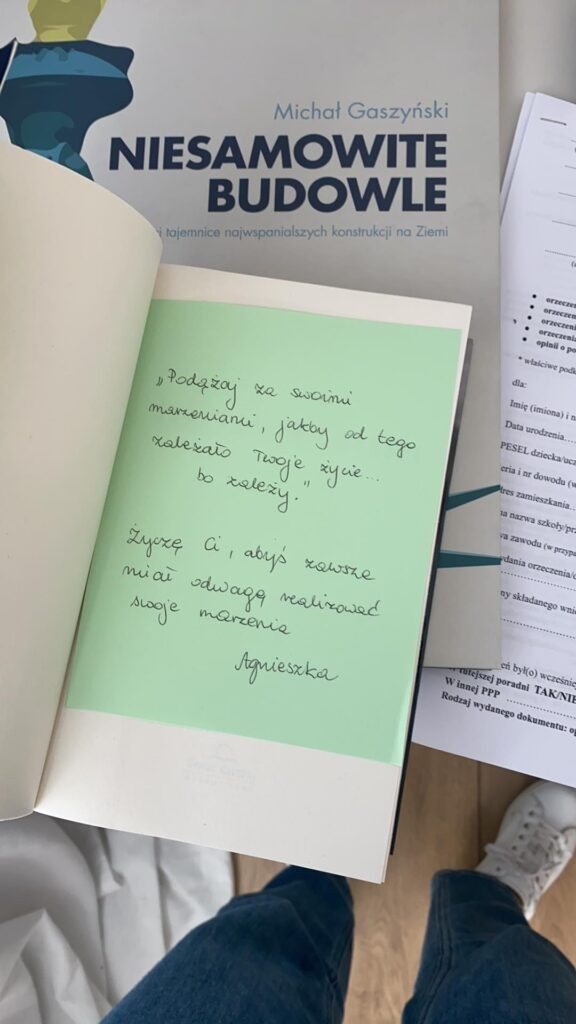 Michał Gaszyński
NIESAMOWITE
BUDOWLE
tajemnice najwspanialszych konstrukcji na Ziemi
„Podążaj za swoimi
marzeniami, jakby od tego
zależało Twoje życie...
bo zależy."
Życzę Ci, abyś zawsze
miał odwagę realizować
swoje marzenia
Agnieszka
• orzeczen
• orzeczen
• orzeczeni
• orzeczenia
• opinii o po
* właściwe podk
dla:
Imię (imiona) i n
Data urodzenia....
PESEL dziecka/ucz
eria i nr dowodu (w
res zamieszkania...
a nazwa szkoły/prz
a zawodu (w przypa
ydania orzeczenia/o
ny składanego wnio
eń był(o) wcześnie
tutejszej poradni TAK/NIE
W innej PPP
Rodzaj wydanego dokumentu: op